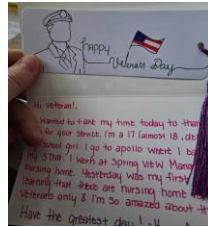 HAPPY
Veterans Day
Hi veteran!,
I wanted to take my time today to than
for your service. I'm a 17 (almost 18, dec
school girl. I go to apollo where I b
my STNA. I work at Spring view Manor
nursing home. Yesterday was my first
learning that there are nursing home for
veterans only & I'm so amazed about th
Have the greatest day!